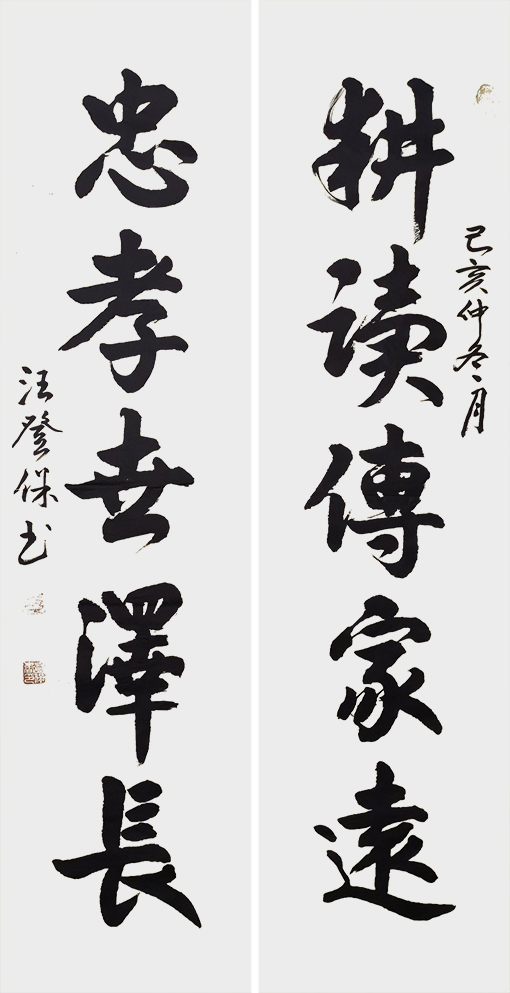 己亥仲冬月
耕读傳家遠
忠孝世澤長
汪登保书